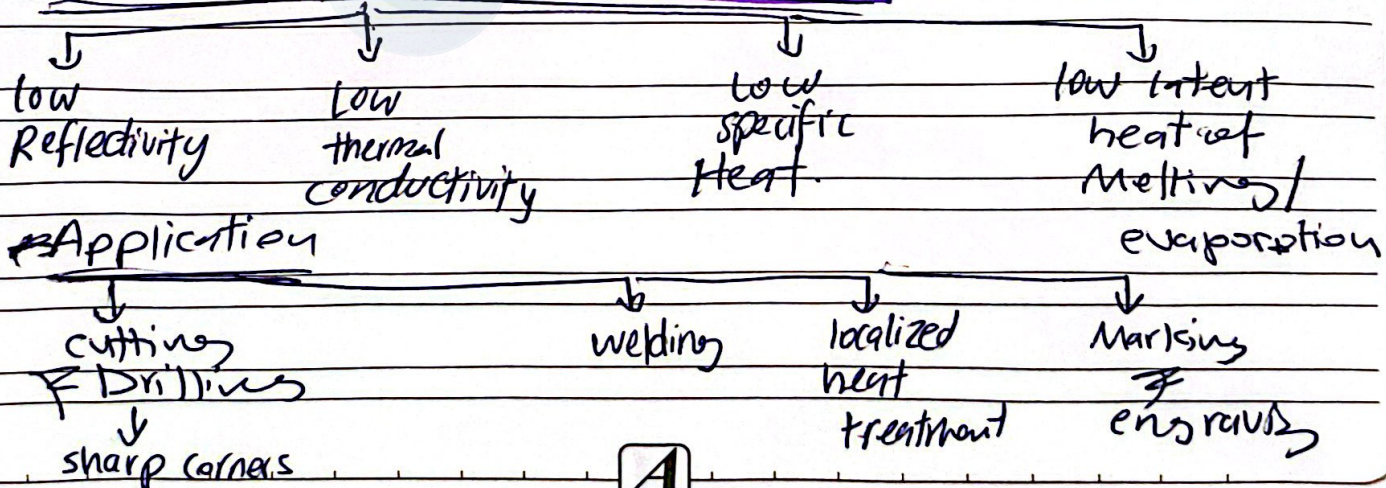 low
Reflectivity
Low
thermal
conductivity
Low
specific
Heat.
low latent
heat of
Melting/
evaporation
Application
cutting
& Drilling
sharp corners
welding
localized
heat
treatment
Marking
&
engraving
A